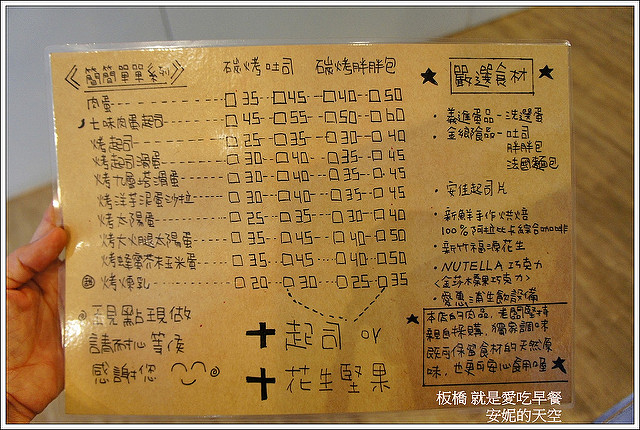 《簡簡單單系列》 碳烤吐司 碳烤胖胖包
肉蛋 35 45 40 50
七味肉蛋起司 45 55 50 60
烤起司 25 35 30 40
烤起司滑蛋 30 40 35 45
烤九層塔滑蛋 30 40 35 45
烤洋芋泥蛋沙拉 30 40 35 45
烤太陽蛋 25 35 30 40
烤大火腿太陽蛋 35 45 40 50
烤蜂蜜芥末玉米蛋 35 45 40 50
烤煉乳 20 30 25 35
現點現做
請耐心等候
感謝您
+ 起司 or
+ 花生堅果
★ 嚴選食材 ★
• 義進蛋品-洗選蛋
• 金鄉食品-吐司
胖胖包
法國麵包
• 安佳起司片
• 新鮮手作烘焙
100%阿拉比卡綜合咖啡
• 新竹福源花生
• NUTELLA 巧克力
<金莎榛果巧克力>
• 愛惠浦生飲設備
★ 本店的肉品,老闆堅持
親自採購、獨家調味
既可保留食材的天然原
味,也更可安心食用喔 ★
板橋 就是愛吃早餐
安妮的天空